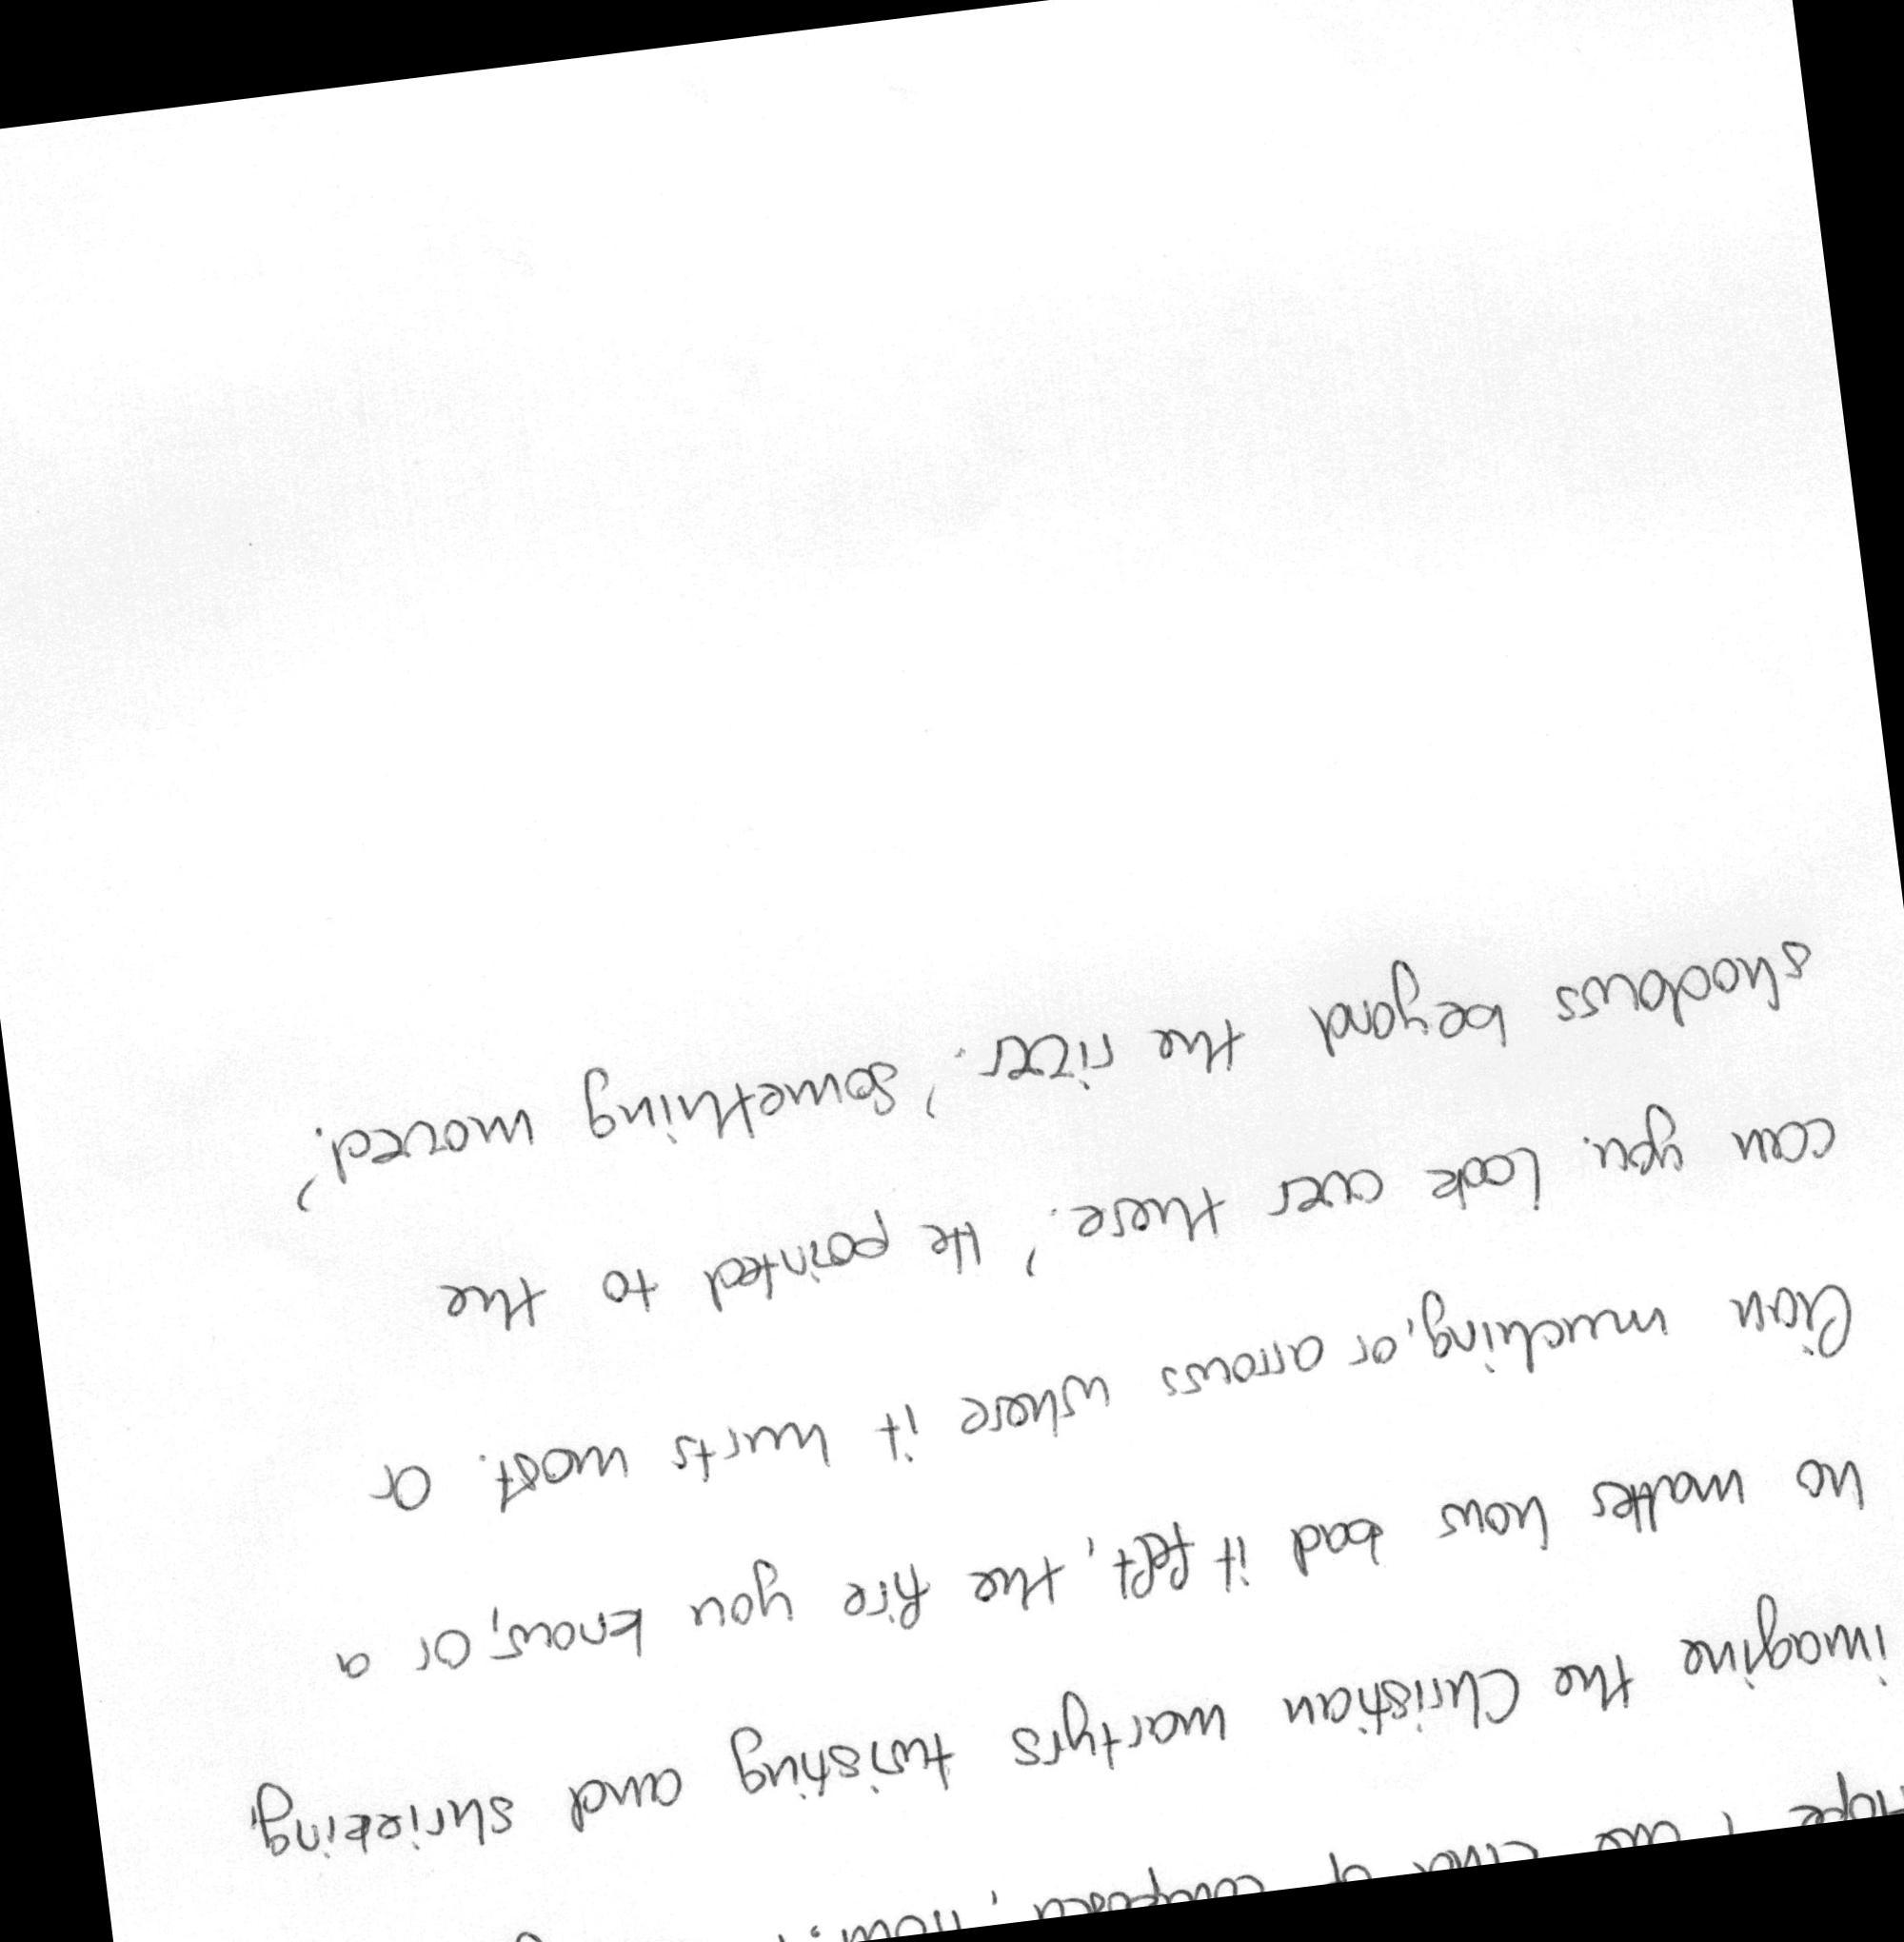 imagine the Christian martyrs twisting and shrieking,
no matter how bad it felt, the fire you know, or a
lion munching, or arrows where it hurts most. Or
can you. Look over there.' He pointed to the
shadows beyond the river. 'Something moved.'